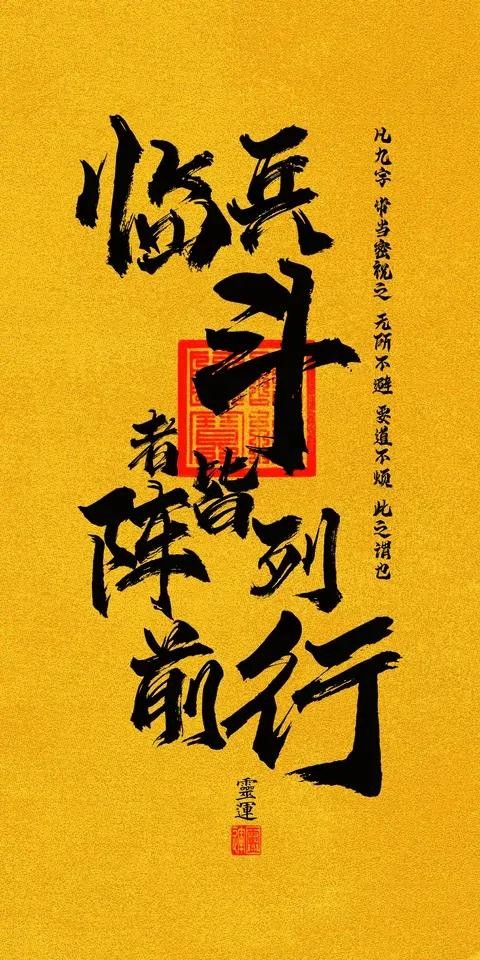 临兵
斗
者皆
阵列
前行
凡九字 常当密祝之 无所不避 要道不烦 此之谓也
靈運